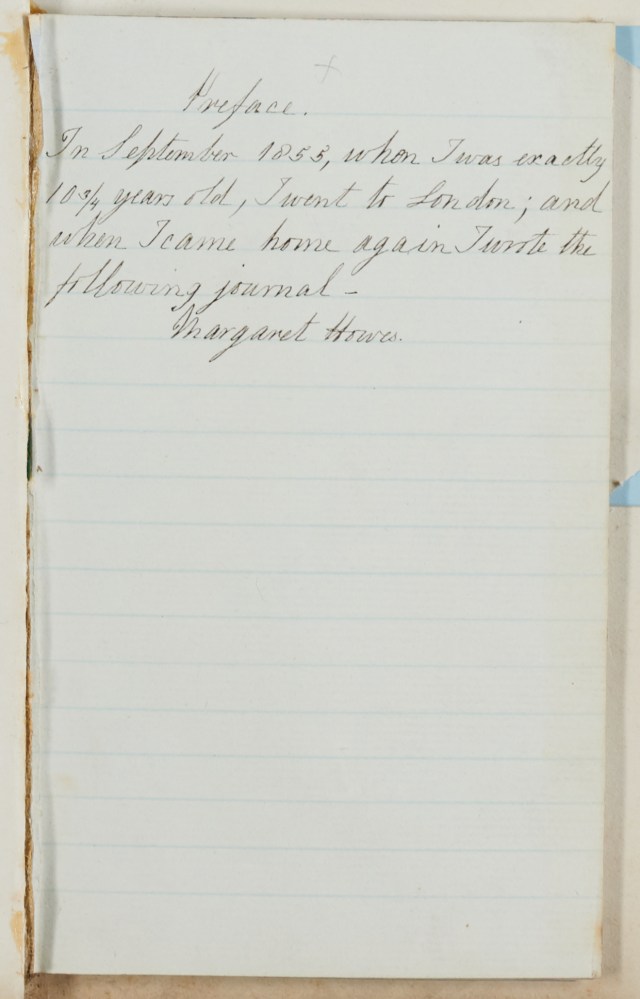 Preface.
In September 1855, when I was exactly
10 3/4 years old, I went to London; and
when I came home again I wrote the
following journal –
Margaret Howes.